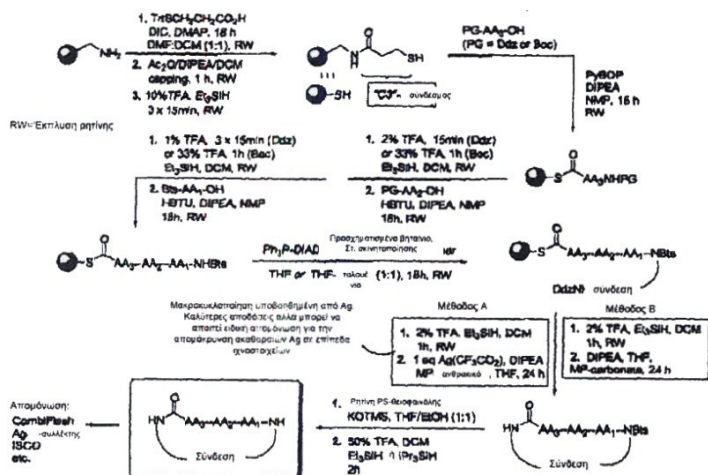 1. TrtSCH₂CH₂CO₂H
DIC, DMAP, 18 h
DMF:DCM (1:1), RW
2. Ac₂O/DIPEA/DCM
capping, 1 h, RW
3. 10%TFA, Et₃SiH
3 x 15min, RW
NH₂
O
N
H
SH
SH
"C3"- σύνδεσμος
PG-AA₃-OH
(PG = Ddz or Boc)
PyBOP
DIPEA
NMP, 16 h
RW
RW=Έκπλυση ρητίνης
1. 1% TFA, 3 x 15min (Ddz)
or 33% TFA, 1h (Boc)
Et₃SiH, DCM, RW
2. Bts-AA₁-OH
HBTU, DIPEA, NMP
18h, RW
1. 2% TFA, 15min (Ddz)
or 33% TFA, 1h (Boc)
Et₃SiH, DCM, RW
2. PG-AA₂-OH
HBTU, DIPEA, NMP
18h, RW
O
S AA₃NHPG
O
S AA₃—AA₂—AA₁-NHBts
Ph₃P-DIAD
Προσχηματισμένο βηταϊνιο,
Στ. ακινητοποίησης
THF or THF- τολουέ (1:1), 18h, RW
νιο
O
S AA₃—AA₂—AA₁-NBts
DdzNH σύνδεση
Μακροκυκλοποίηση υποβοηθημένη από Ag.
Καλύτερες αποδόσεις αλλά μπορεί να
απαιτεί ειδική απομόνωση για την
απομάκρυνση ακαθαρσιών Ag σε επίπεδα
ιχνοστοιχείων
Μέθοδος A
1. 2% TFA, Et₃SiH, DCM
1h, RW
2. 1 eq Ag(CF₃CO₂), DIPEA
MP ανθρακικό , THF, 24 h
Μέθοδος B
1. 2% TFA, Et₃SiH, DCM
1h, RW
2. DIPEA, THF,
MP-carbonate, 24 h
Απομόνωση:
CombiFlash
Ag -συλλέκτης
ISCO
etc.
O
HN AA₃—AA₂—AA₁-NH
Σύνδεση
1. Ρητίνη PS-θειοφαινόλης
KOTMS, THF/EtOH (1:1)
2. 50% TFA, DCM
Et₃SiH ή iPr₃SiH
2h
O
HN AA₃—AA₂—AA₁-NBts
Σύνδεση